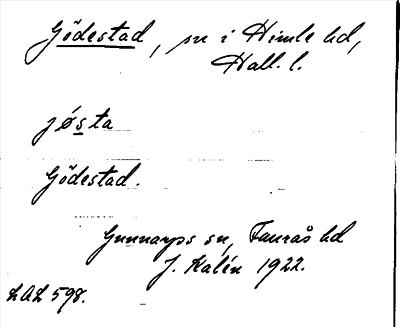 Gödestad, sn i Himle hd,
Hall. l.
jøsta
Gödestad.
Gunnarps sn, Faurås hd
J. Kalén 1922.
LAL 598.